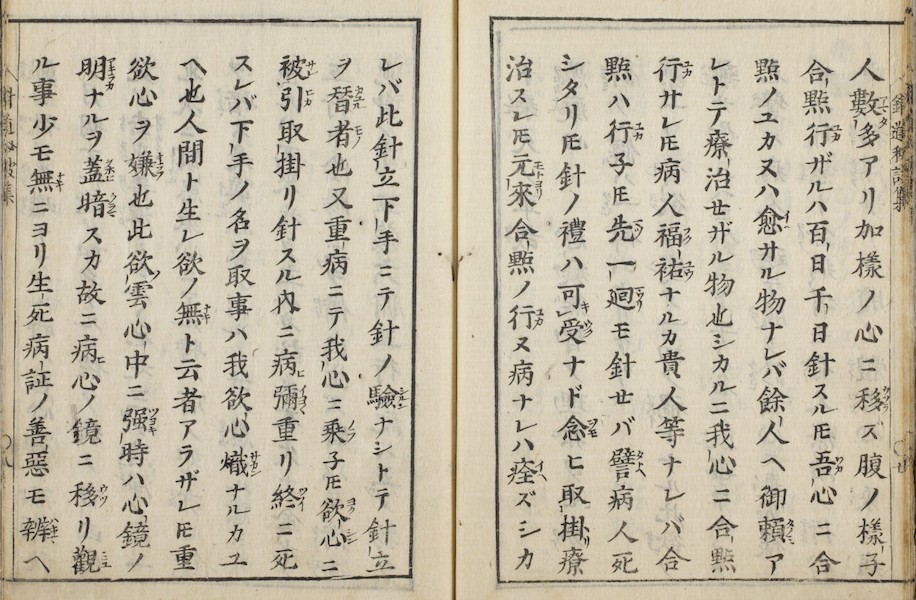 人數多アリ加樣ノ心ニ移ズ腹ノ樣子
合㸃行ザルハ百日千日針スルㇳモ吾心ニ合
㸃ノユカヌハ愈サル物ナレバ餘人ヘ御頼ア
レトテ療治セザル物也シカルニ我心ニ合㸃
行サレㇳモ病人福祐ナルカ貴人等ナレバ合
㸃ハ行子ㇳモ先一廻モ針セバ譬病人死
シタリㇳモ針ノ禮ハ可受ナド念ヒ取掛療
治スレㇳモ元來合㸃ノ行ヌ病ナレハ痊ズシカ
レバ此針立下手ニテ針ノ驗ナシトテ針立
ヲ替者也又重病ニテ我心ニ乗子ㇳモ欲心ニ
被引取掛リ針スル内ニ病彌重リ終ニ死
スレバ下手ノ名ヲ取事ハ我欲心熾ナルカユ
ヘ也人間ト生レ欲ノ無ト云者アラザレㇳモ重
欲心ヲ嫌也此欲雲心中ニ强時ハ心鏡ノ
明ナルヲ蓋暗スカ故ニ病心ノ鏡ニ移リ觀
ル事少モ無ニヨリ生死病証ノ善惡モ辨ヘ